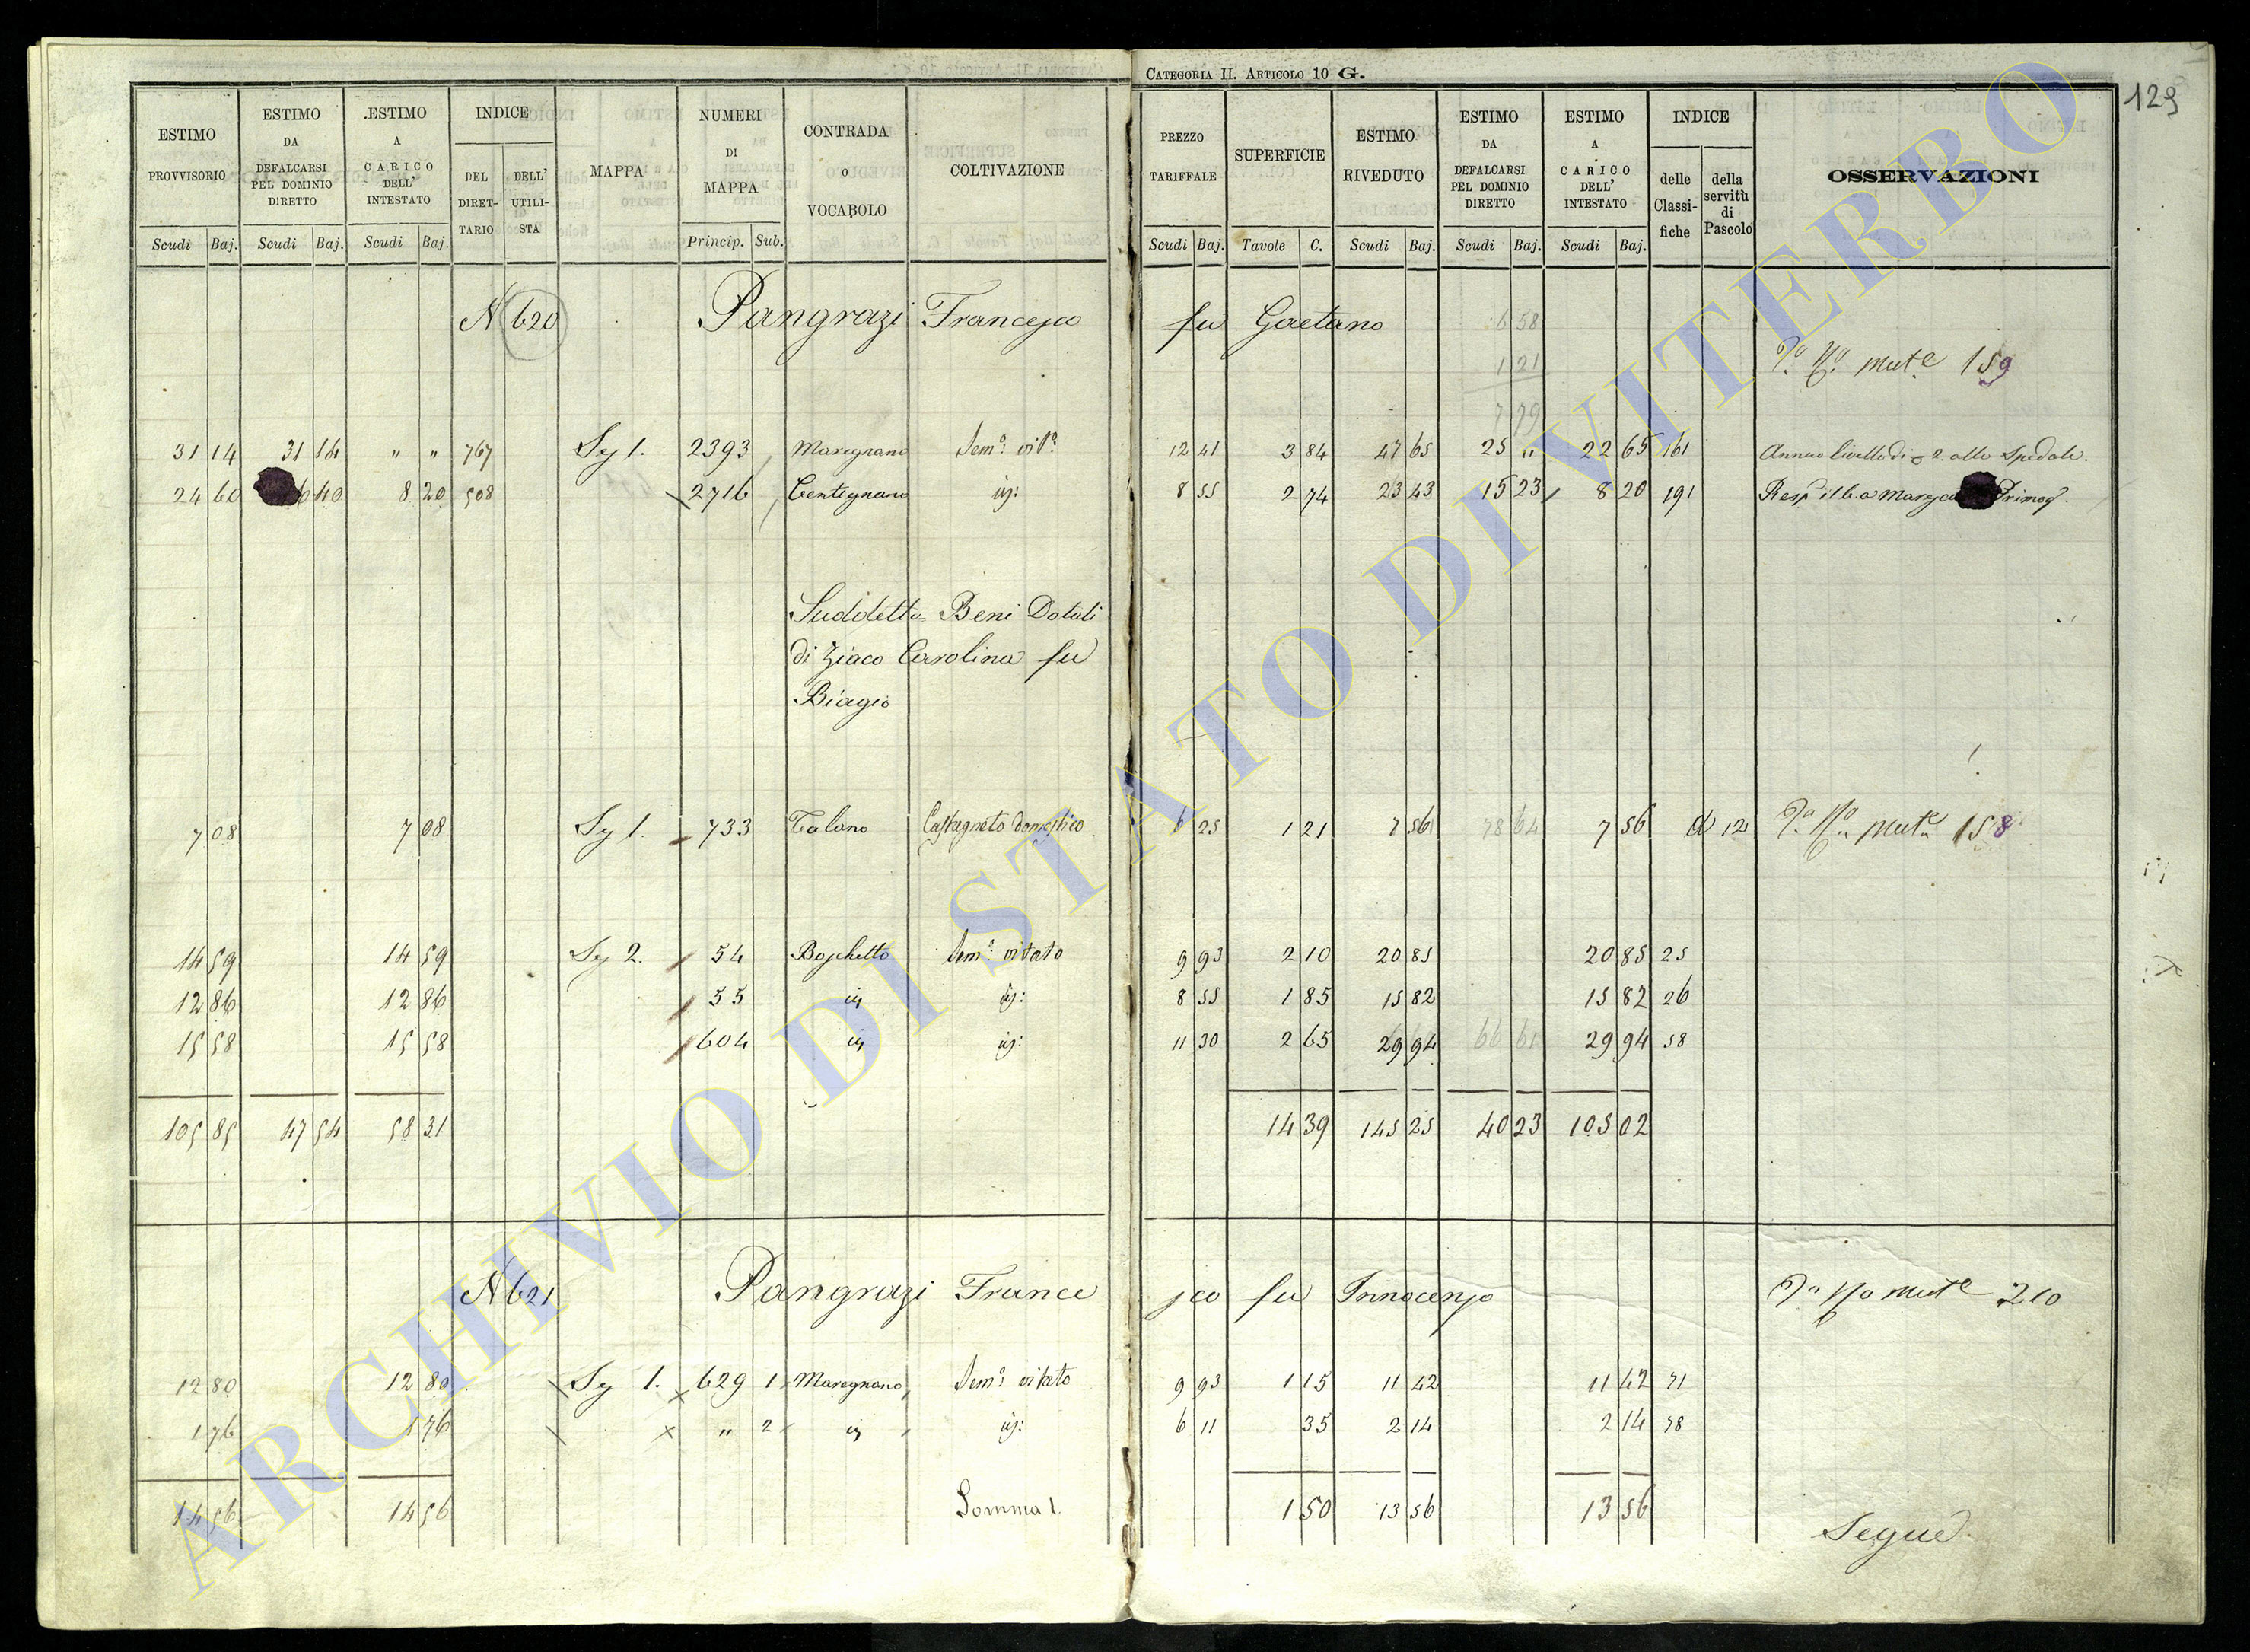 CATEGORIA II. ARTICOLO 10 G.
129
ESTIMO PROVVISORIO Scudi Baj. ESTIMO DA DEFALCARSI PEL DOMINIO DIRETTO Scudi Baj. ESTIMO A CARICO DELL' INTESTATO Scudi Baj. INDICE DEL DIRET-TARIO DELL' UTILI-STA MAPPA NUMERI DI MAPPA Princip. Sub. CONTRADA o VOCABOLO COLTIVAZIONE PREZZO TARIFFALE Scudi Baj. SUPERFICIE Tavole C. ESTIMO RIVEDUTO Scudi Baj. ESTIMO DA DEFALCARSI PEL DOMINIO DIRETTO Scudi Baj. ESTIMO A CARICO DELL' INTESTATO Scudi Baj. INDICE delle Classi-fiche della servitù di Pascolo OSSERVAZIONI
N 620 Pangrazi Francesco fu Gaetano 6 58
1 21 mut.e 159
7 79
31 14 31 14 " " 767 Sz 1. 2393 Maregnano Sem.o vit.o 12 41 3 84 47 65 25 " 22 65 161 Annuo livello di 2. allo Spedale.
24 60 6 40 8 20 508 2716 Centegnano id: 8 55 2 74 23 43 15 23 8 20 191
Suddetto = Beni Dotali
di Ziaco Carolina fu
Biagio
7 08 7 08 Sz 1. 733 Talano Castagneto domestico 6 25 1 21 7 56 78 64 7 56 d 12 mut.e 158
14 59 14 59 Sz 2. 54 Boschetto Sem.o vitato 9 93 2 10 20 85 20 85 25
12 86 12 86 55 id id: 8 55 1 85 15 82 15 82 26
15 58 15 58 604 id id: 11 30 2 65 29 94 66 61 29 94 58
105 85 47 54 58 31 14 39 145 25 40 23 105 02
N 621 Pangrazi Francesco fu Innocenzo mut.e 210
12 80 12 80 Sz 1. 629 1 Maregnano Sem.o vitato 9 93 1 15 11 42 11 42 71
1 76 1 76 " 2 id id: 6 11 35 2 14 2 14 78
14 56 14 56 Somma 1. 1 50 13 56 13 56
Segue
ARCHIVIO DI STATO DI VITERBO